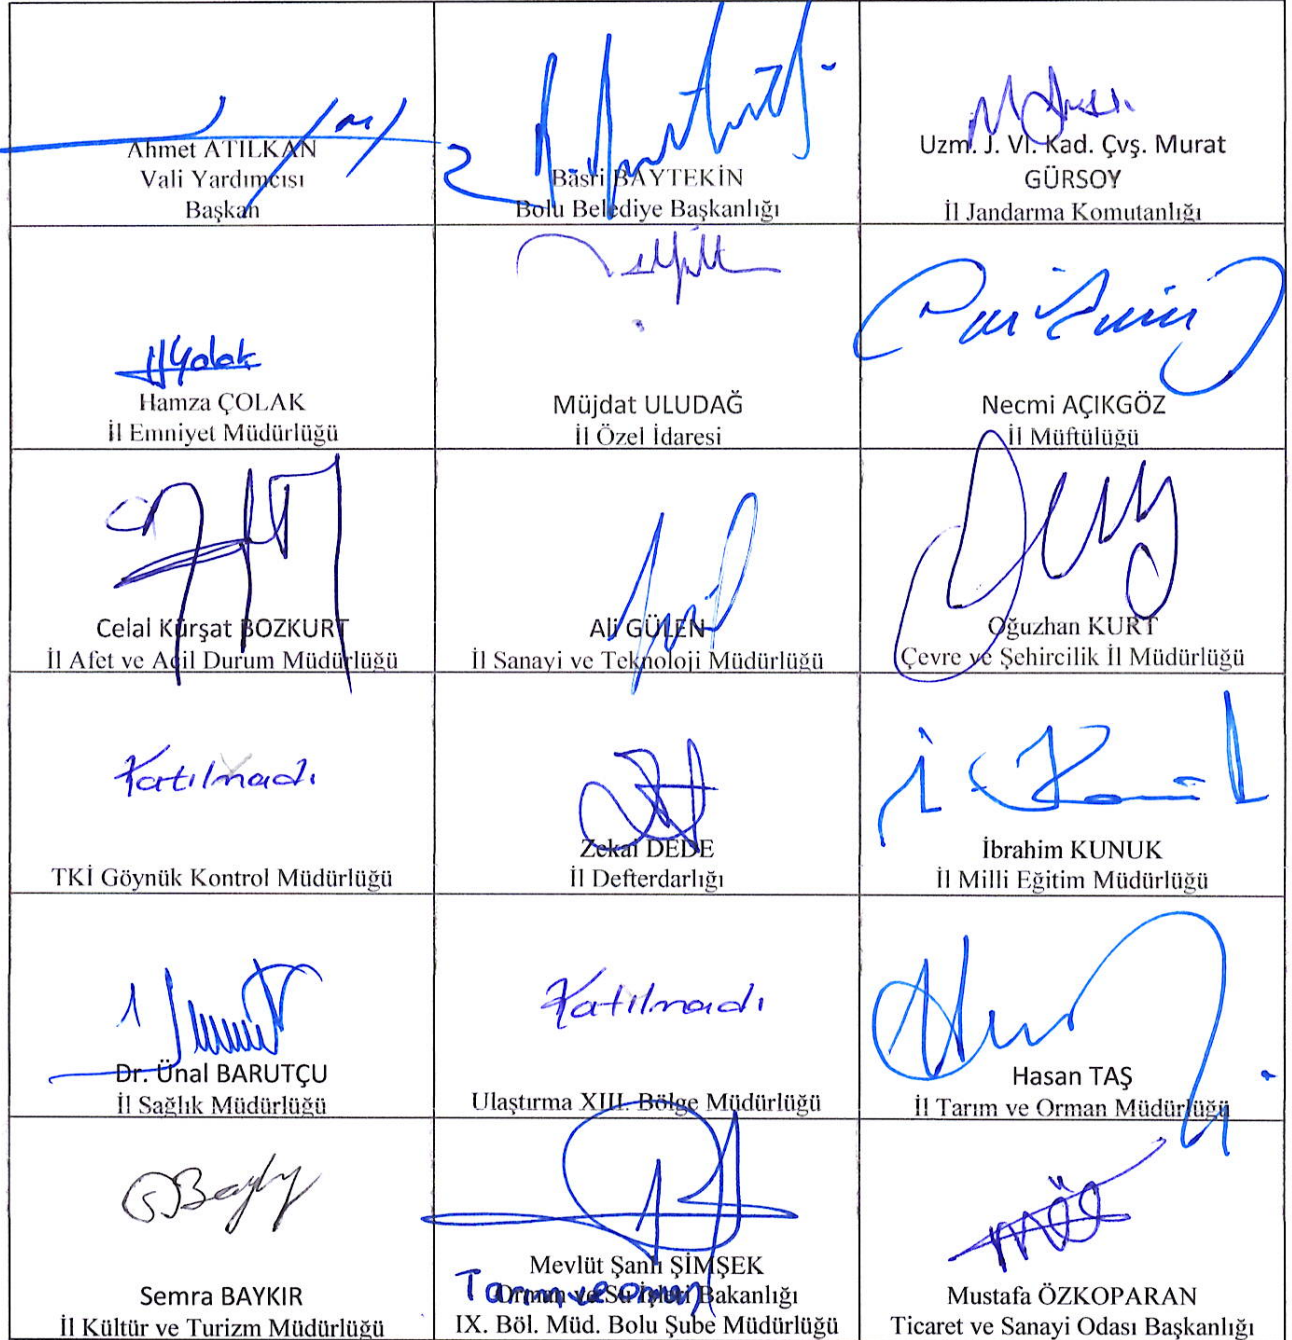 Ahmet ATILKAN
Vali Yardımcısı
Başkan
Basri BAYTEKİN
Bolu Belediye Başkanlığı
Uzm. J. VI. Kad. Çvş. Murat
GÜRSOY
İl Jandarma Komutanlığı
HÇolak
Hamza ÇOLAK
İl Emniyet Müdürlüğü
Müjdat ULUDAĞ
İl Özel İdaresi
Necmi AÇIKGÖZ
İl Müftülüğü
Celal Kürşat BOZKURT
İl Afet ve Acil Durum Müdürlüğü
Ali GÜLEN
İl Sanayi ve Teknoloji Müdürlüğü
Oğuzhan KURT
Çevre ve Şehircilik İl Müdürlüğü
Katılmadı
TKİ Göynük Kontrol Müdürlüğü
Zekai DEDE
İl Defterdarlığı
İbrahim KUNUK
İl Milli Eğitim Müdürlüğü
Dr. Ünal BARUTÇU
İl Sağlık Müdürlüğü
Katılmadı
Ulaştırma XIII. Bölge Müdürlüğü
Hasan TAŞ
İl Tarım ve Orman Müdürlüğü
Semra BAYKIR
İl Kültür ve Turizm Müdürlüğü
Mevlüt Şanlı ŞİMŞEK
Tarım ve orman
Orman ve Su İşleri Bakanlığı
IX. Böl. Müd. Bolu Şube Müdürlüğü
Mustafa ÖZKOPARAN
Ticaret ve Sanayi Odası Başkanlığı